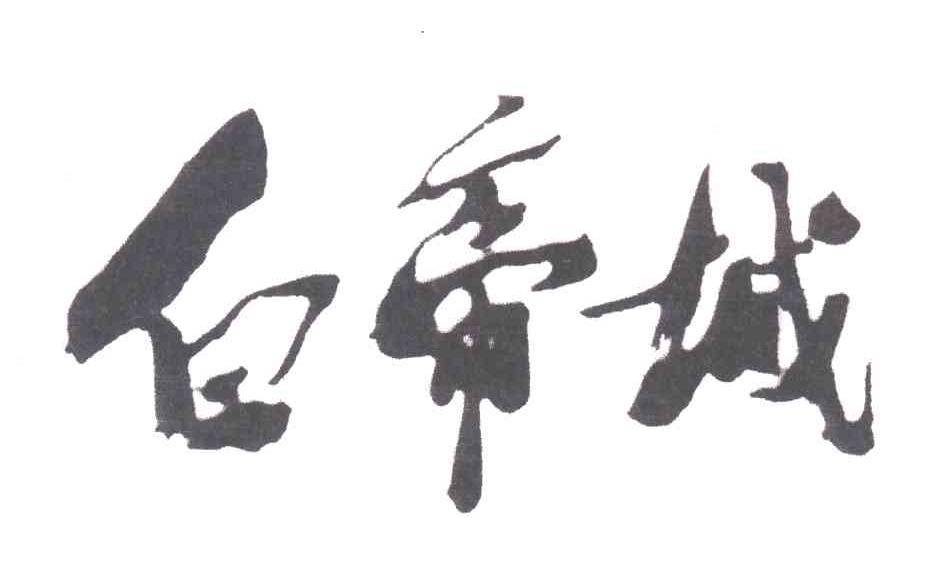 白帝城